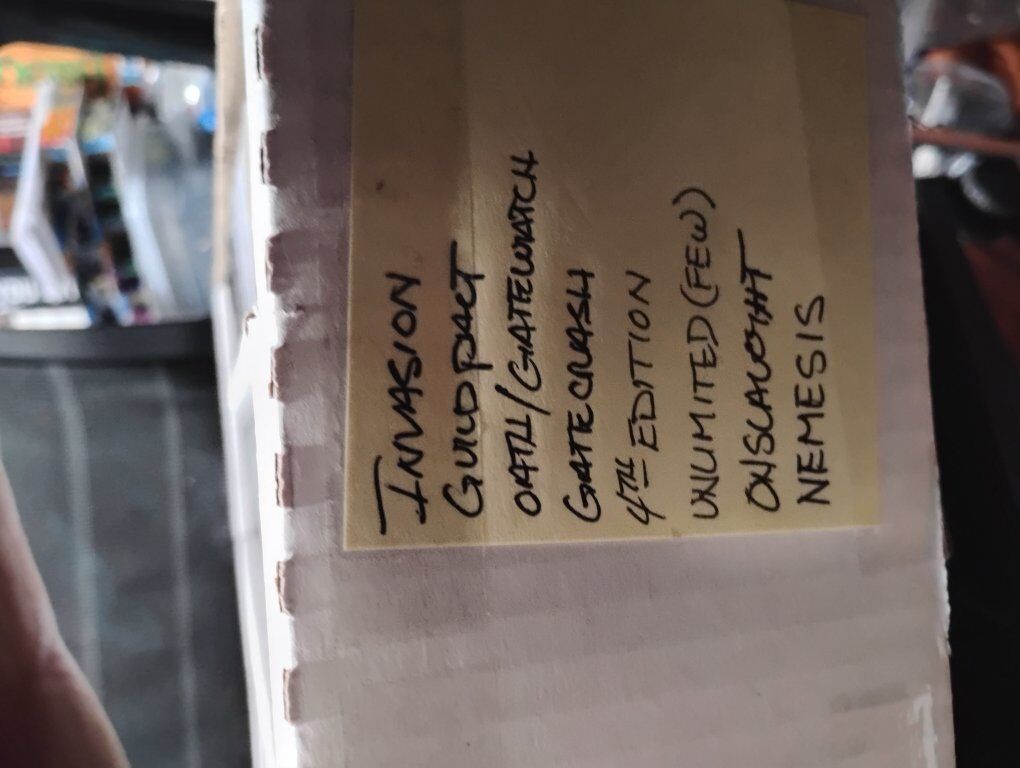 INVASION
GUILDPACT
OATH/GATEWATCH
GATECRASH
4TH EDITION
UNLIMITED (FEW)
ONSLAUGHT
NEMESIS